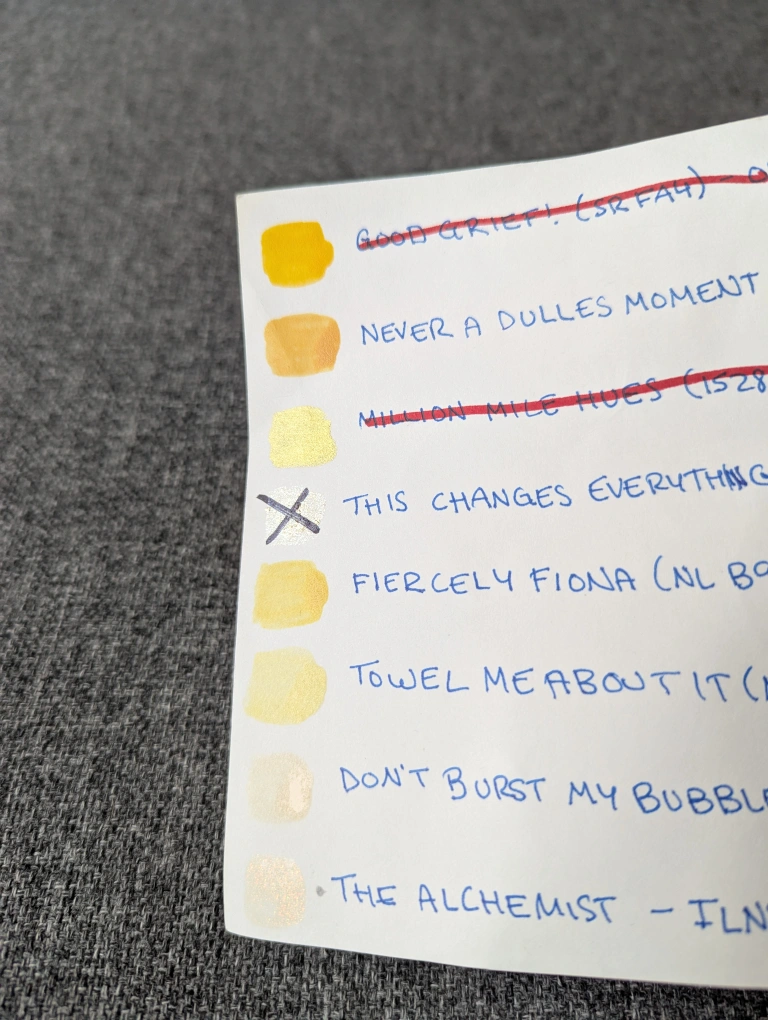 GOOD GRIEF! (SRFA4) - O
NEVER A DULLES MOMENT
MILLION MILE HUES (1528
THIS CHANGES EVERYTHING
FIERCELY FIONA (NL BO
TOWEL ME ABOUT IT (
DON'T BURST MY BUBBLE
THE ALCHEMIST - ILN